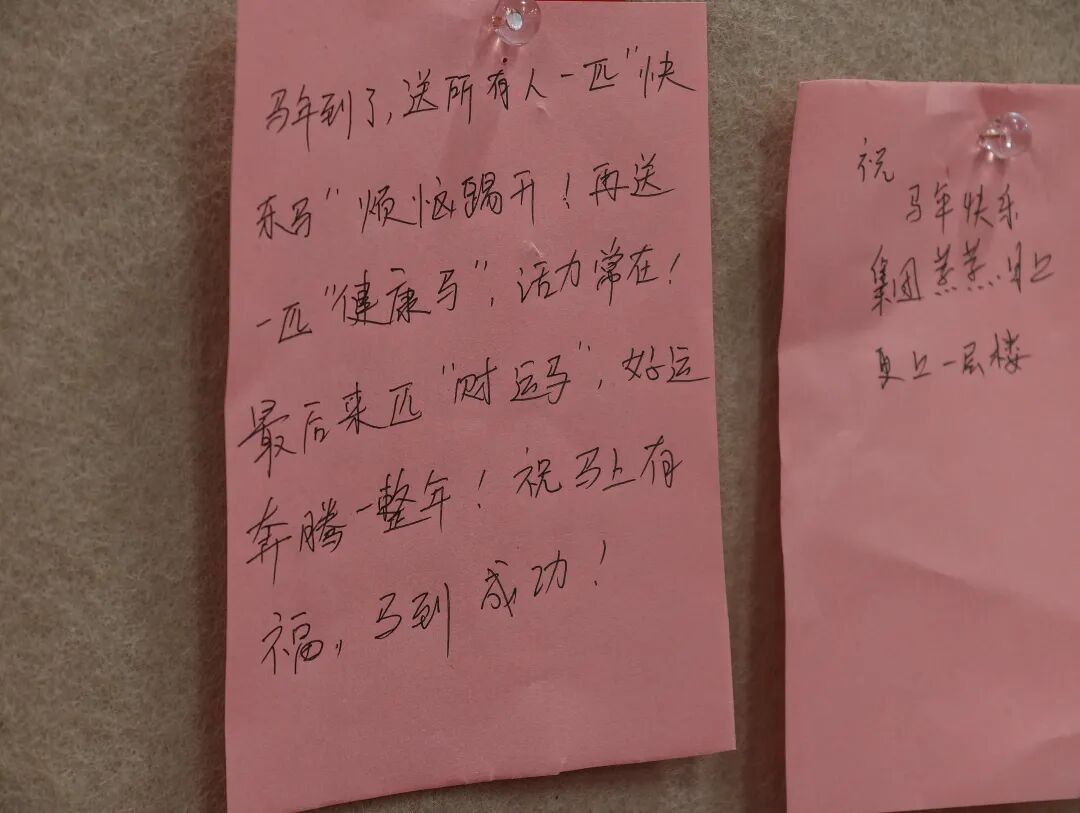 马年到了,送所有人一匹"快
乐马"烦恼踢开!再送
一匹"健康马",活力常在!
最后来匹"财运马",好运
奔腾一整年!祝马上有
福,马到成功!
祝
马年快乐
集团蒸蒸日上
更上一层楼